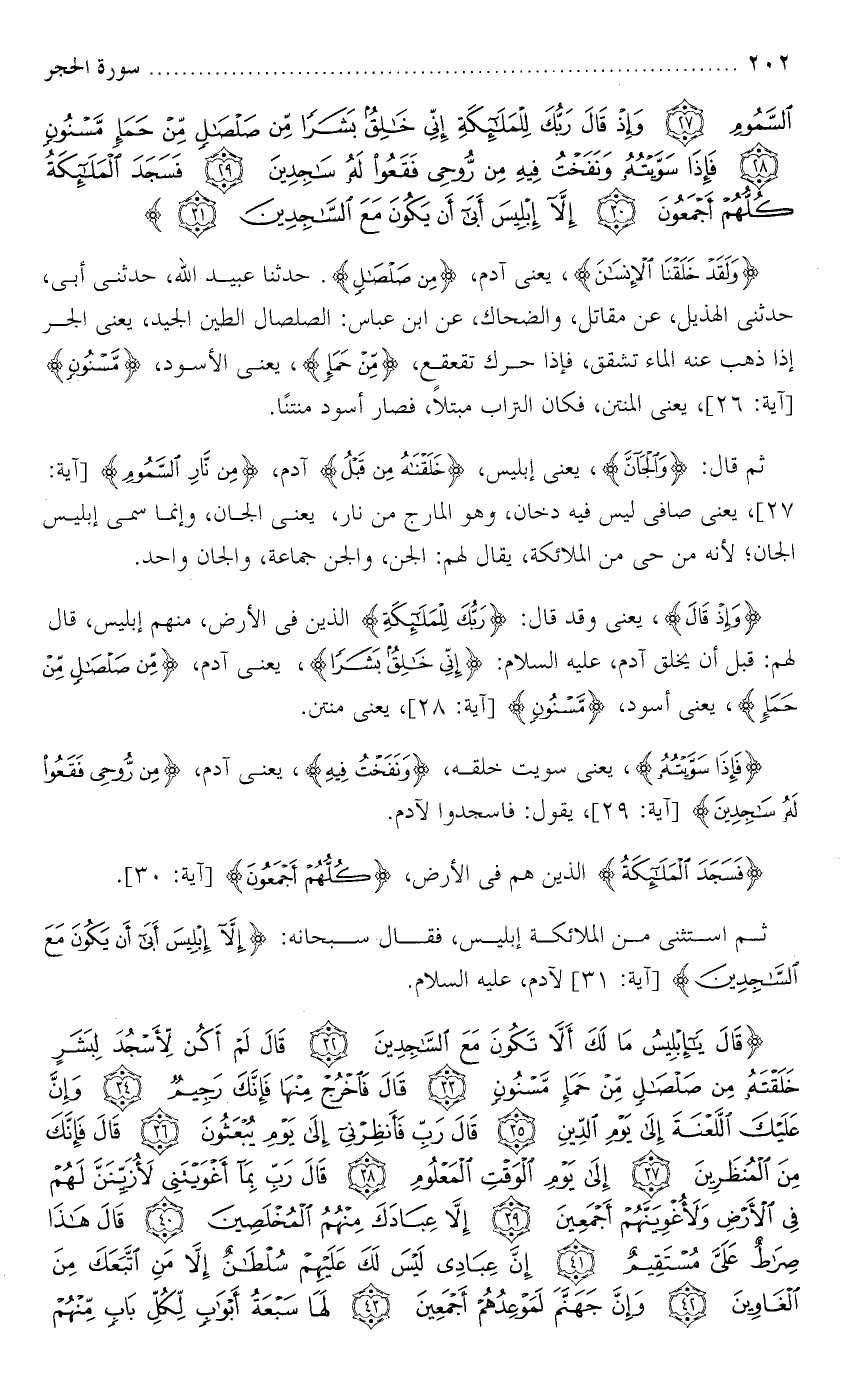 ٢٠٢ ........................................................................ سورة الحجر
ٱلسَّمُومِ ۝٢٧ وَإِذْ قَالَ رَبُّكَ لِلْمَلَٰٓئِكَةِ إِنِّى خَٰلِقٌۢ بَشَرًا مِّن صَلْصَٰلٍ مِّنْ حَمَإٍ مَّسْنُونٍ
۝٢٨ فَإِذَا سَوَّيْتُهُۥ وَنَفَخْتُ فِيهِ مِن رُّوحِى فَقَعُوا۟ لَهُۥ سَٰجِدِينَ ۝٢٩ فَسَجَدَ ٱلْمَلَٰٓئِكَةُ
كُلُّهُمْ أَجْمَعُونَ ۝٣٠ إِلَّآ إِبْلِيسَ أَبَىٰٓ أَن يَكُونَ مَعَ ٱلسَّٰجِدِينَ ۝٣١ ﴾
﴿وَلَقَدْ خَلَقْنَا ٱلْإِنسَٰنَ﴾، يعنى آدم، ﴿مِن صَلْصَٰلٍ﴾. حدثنا عبيد الله، حدثنى أبى،
حدثنى الهذيل، عن مقاتل، والضحاك، عن ابن عباس: الصلصال الطين الجيد، يعنى الحر
إذا ذهب عنه الماء تشقق، فإذا حرك تقعقع، ﴿مِّنْ حَمَإٍ﴾، يعنى الأسود، ﴿مَّسْنُونٍ﴾
[آية: ٢٦]، يعنى المنتن، فكان التراب مبتلاً، فصار أسود منتنًا.
ثم قال: ﴿وَٱلْجَآنَّ﴾، يعنى إبليس، ﴿خَلَقْنَٰهُ مِن قَبْلُ﴾ آدم، ﴿مِن نَّارِ ٱلسَّمُومِ﴾ [آية:
٢٧]، يعنى صافى ليس فيه دخان، وهو المارج من نار، يعنى الجان، وإنما سمى إبليس
الجان؛ لأنه من حى من الملائكة، يقال لهم: الجن، والجن جماعة، والجان واحد.
﴿وَإِذْ قَالَ﴾، يعنى وقد قال: ﴿رَبُّكَ لِلْمَلَٰٓئِكَةِ﴾ الذين فى الأرض، منهم إبليس، قال
لهم: قبل أن يخلق آدم، عليه السلام: ﴿إِنِّى خَٰلِقٌۢ بَشَرًا﴾، يعنى آدم، ﴿مِّن صَلْصَٰلٍ مِّنْ
حَمَإٍ﴾، يعنى أسود، ﴿مَّسْنُونٍ﴾ [آية: ٢٨]، يعنى منتن.
﴿فَإِذَا سَوَّيْتُهُۥ﴾، يعنى سويت خلقه، ﴿وَنَفَخْتُ فِيهِ﴾، يعنى آدم، ﴿مِن رُّوحِى فَقَعُوا۟
لَهُۥ سَٰجِدِينَ﴾ [آية: ٢٩]، يقول: فاسجدوا لآدم.
﴿فَسَجَدَ ٱلْمَلَٰٓئِكَةُ﴾ الذين هم فى الأرض، ﴿كُلُّهُمْ أَجْمَعُونَ﴾ [آية: ٣٠].
ثم استثنى من الملائكة إبليس، فقال سبحانه: ﴿إِلَّآ إِبْلِيسَ أَبَىٰٓ أَن يَكُونَ مَعَ
ٱلسَّٰجِدِينَ﴾ [آية: ٣١] لآدم، عليه السلام.
﴿قَالَ يَٰٓإِبْلِيسُ مَا لَكَ أَلَّا تَكُونَ مَعَ ٱلسَّٰجِدِينَ ۝٣٢ قَالَ لَمْ أَكُن لِّأَسْجُدَ لِبَشَرٍ
خَلَقْتَهُۥ مِن صَلْصَٰلٍ مِّنْ حَمَإٍ مَّسْنُونٍ ۝٣٣ قَالَ فَٱخْرُجْ مِنْهَا فَإِنَّكَ رَجِيمٌ ۝٣٤ وَإِنَّ
عَلَيْكَ ٱللَّعْنَةَ إِلَىٰ يَوْمِ ٱلدِّينِ ۝٣٥ قَالَ رَبِّ فَأَنظِرْنِىٓ إِلَىٰ يَوْمِ يُبْعَثُونَ ۝٣٦ قَالَ فَإِنَّكَ
مِنَ ٱلْمُنظَرِينَ ۝٣٧ إِلَىٰ يَوْمِ ٱلْوَقْتِ ٱلْمَعْلُومِ ۝٣٨ قَالَ رَبِّ بِمَآ أَغْوَيْتَنِى لَأُزَيِّنَنَّ لَهُمْ
فِى ٱلْأَرْضِ وَلَأُغْوِيَنَّهُمْ أَجْمَعِينَ ۝٣٩ إِلَّا عِبَادَكَ مِنْهُمُ ٱلْمُخْلَصِينَ ۝٤٠ قَالَ هَٰذَا
صِرَٰطٌ عَلَىَّ مُسْتَقِيمٌ ۝٤١ إِنَّ عِبَادِى لَيْسَ لَكَ عَلَيْهِمْ سُلْطَٰنٌ إِلَّا مَنِ ٱتَّبَعَكَ مِنَ
ٱلْغَاوِينَ ۝٤٢ وَإِنَّ جَهَنَّمَ لَمَوْعِدُهُمْ أَجْمَعِينَ ۝٤٣ لَهَا سَبْعَةُ أَبْوَٰبٍ لِّكُلِّ بَابٍ مِّنْهُمْ